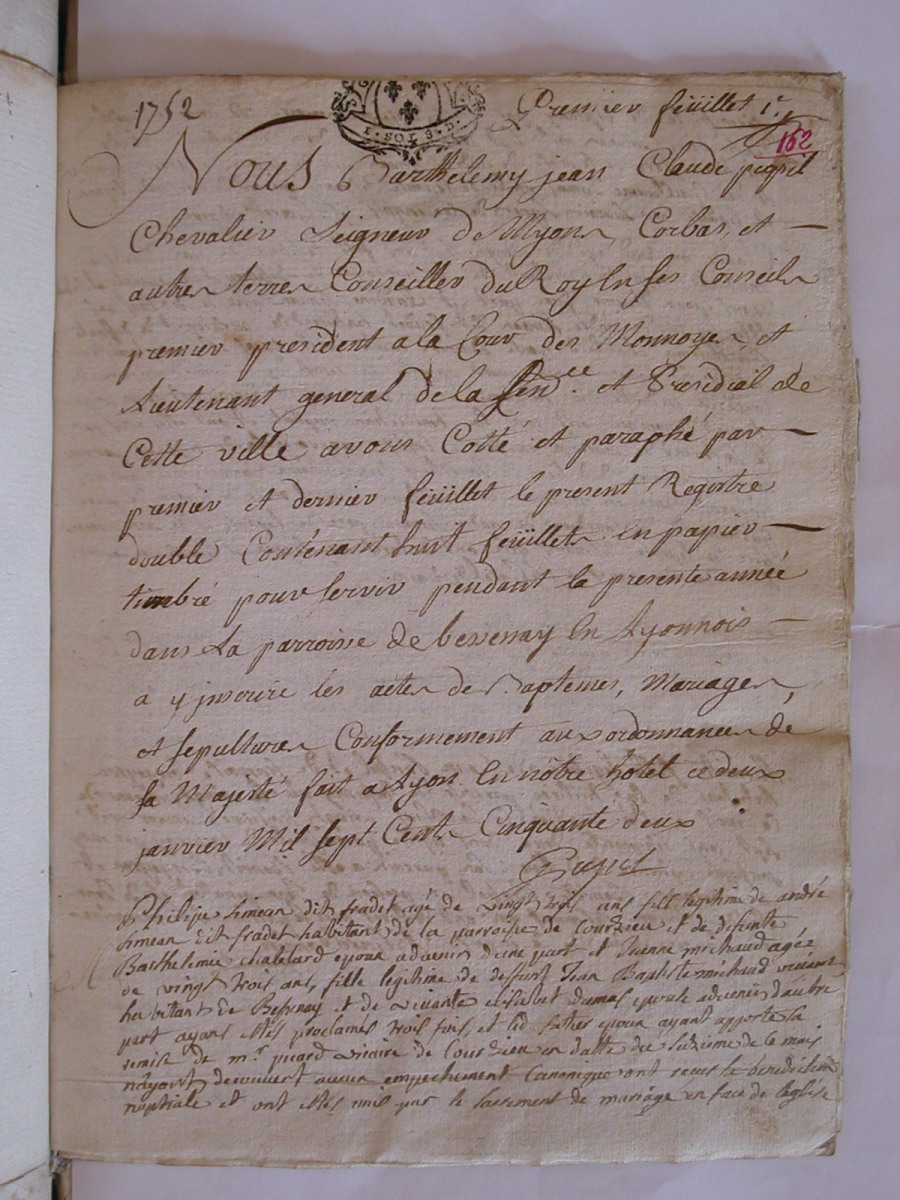 1752
Premier feüillet 1.r
162
Nous Barthelemy jean Claude pupil
Chevalier Seigneur de Myons, Corbas, et
autres terres Conseiller du Roy En ses Conseils
premier president a la Cour des Monnoyes et
Lieutenant general de la Sen.ée et Presidial de
Cette ville avons Cotté et paraphé par
premier et dernier feüillet le present Registre
double Contenant huit feüillets en papier
timbré pour servir pendant la presente année
dans La parroisse de bessenay En Lyonnois
a y jnscrire les actes de Baptemes, Mariages,
et sepultures Conformement aux ordonnances de
sa Majesté fait a Lyon En nôtre hotel ce deux
janvier Mil sept Cents Cinquante deux
Pupil
Philipe simean dit fradet agé de vingt trois ans fill legitime de andré
simean dit fradet habitant de la parroisse de Courzieu et de defunte
Barthelmie chatelard epoux advenir d'une part et Jeanne michaud agée
de vingt trois ans, fille legitime de deffunt Jean Baptiste michaud vivant
habitant de Bessenay et de vivante dumas epouse advenir d'autre
part ayans étés proclamés trois fois, et led. epoux ayant apporté sa
remise de m.r picard vicaire de Courzieu en datte du de ce mois
n'ayant decouvert aucun empechement Canonique ont reçus la benediction
nuptiale et ont étés unis par le sacrement de mariage en face de l'eglise